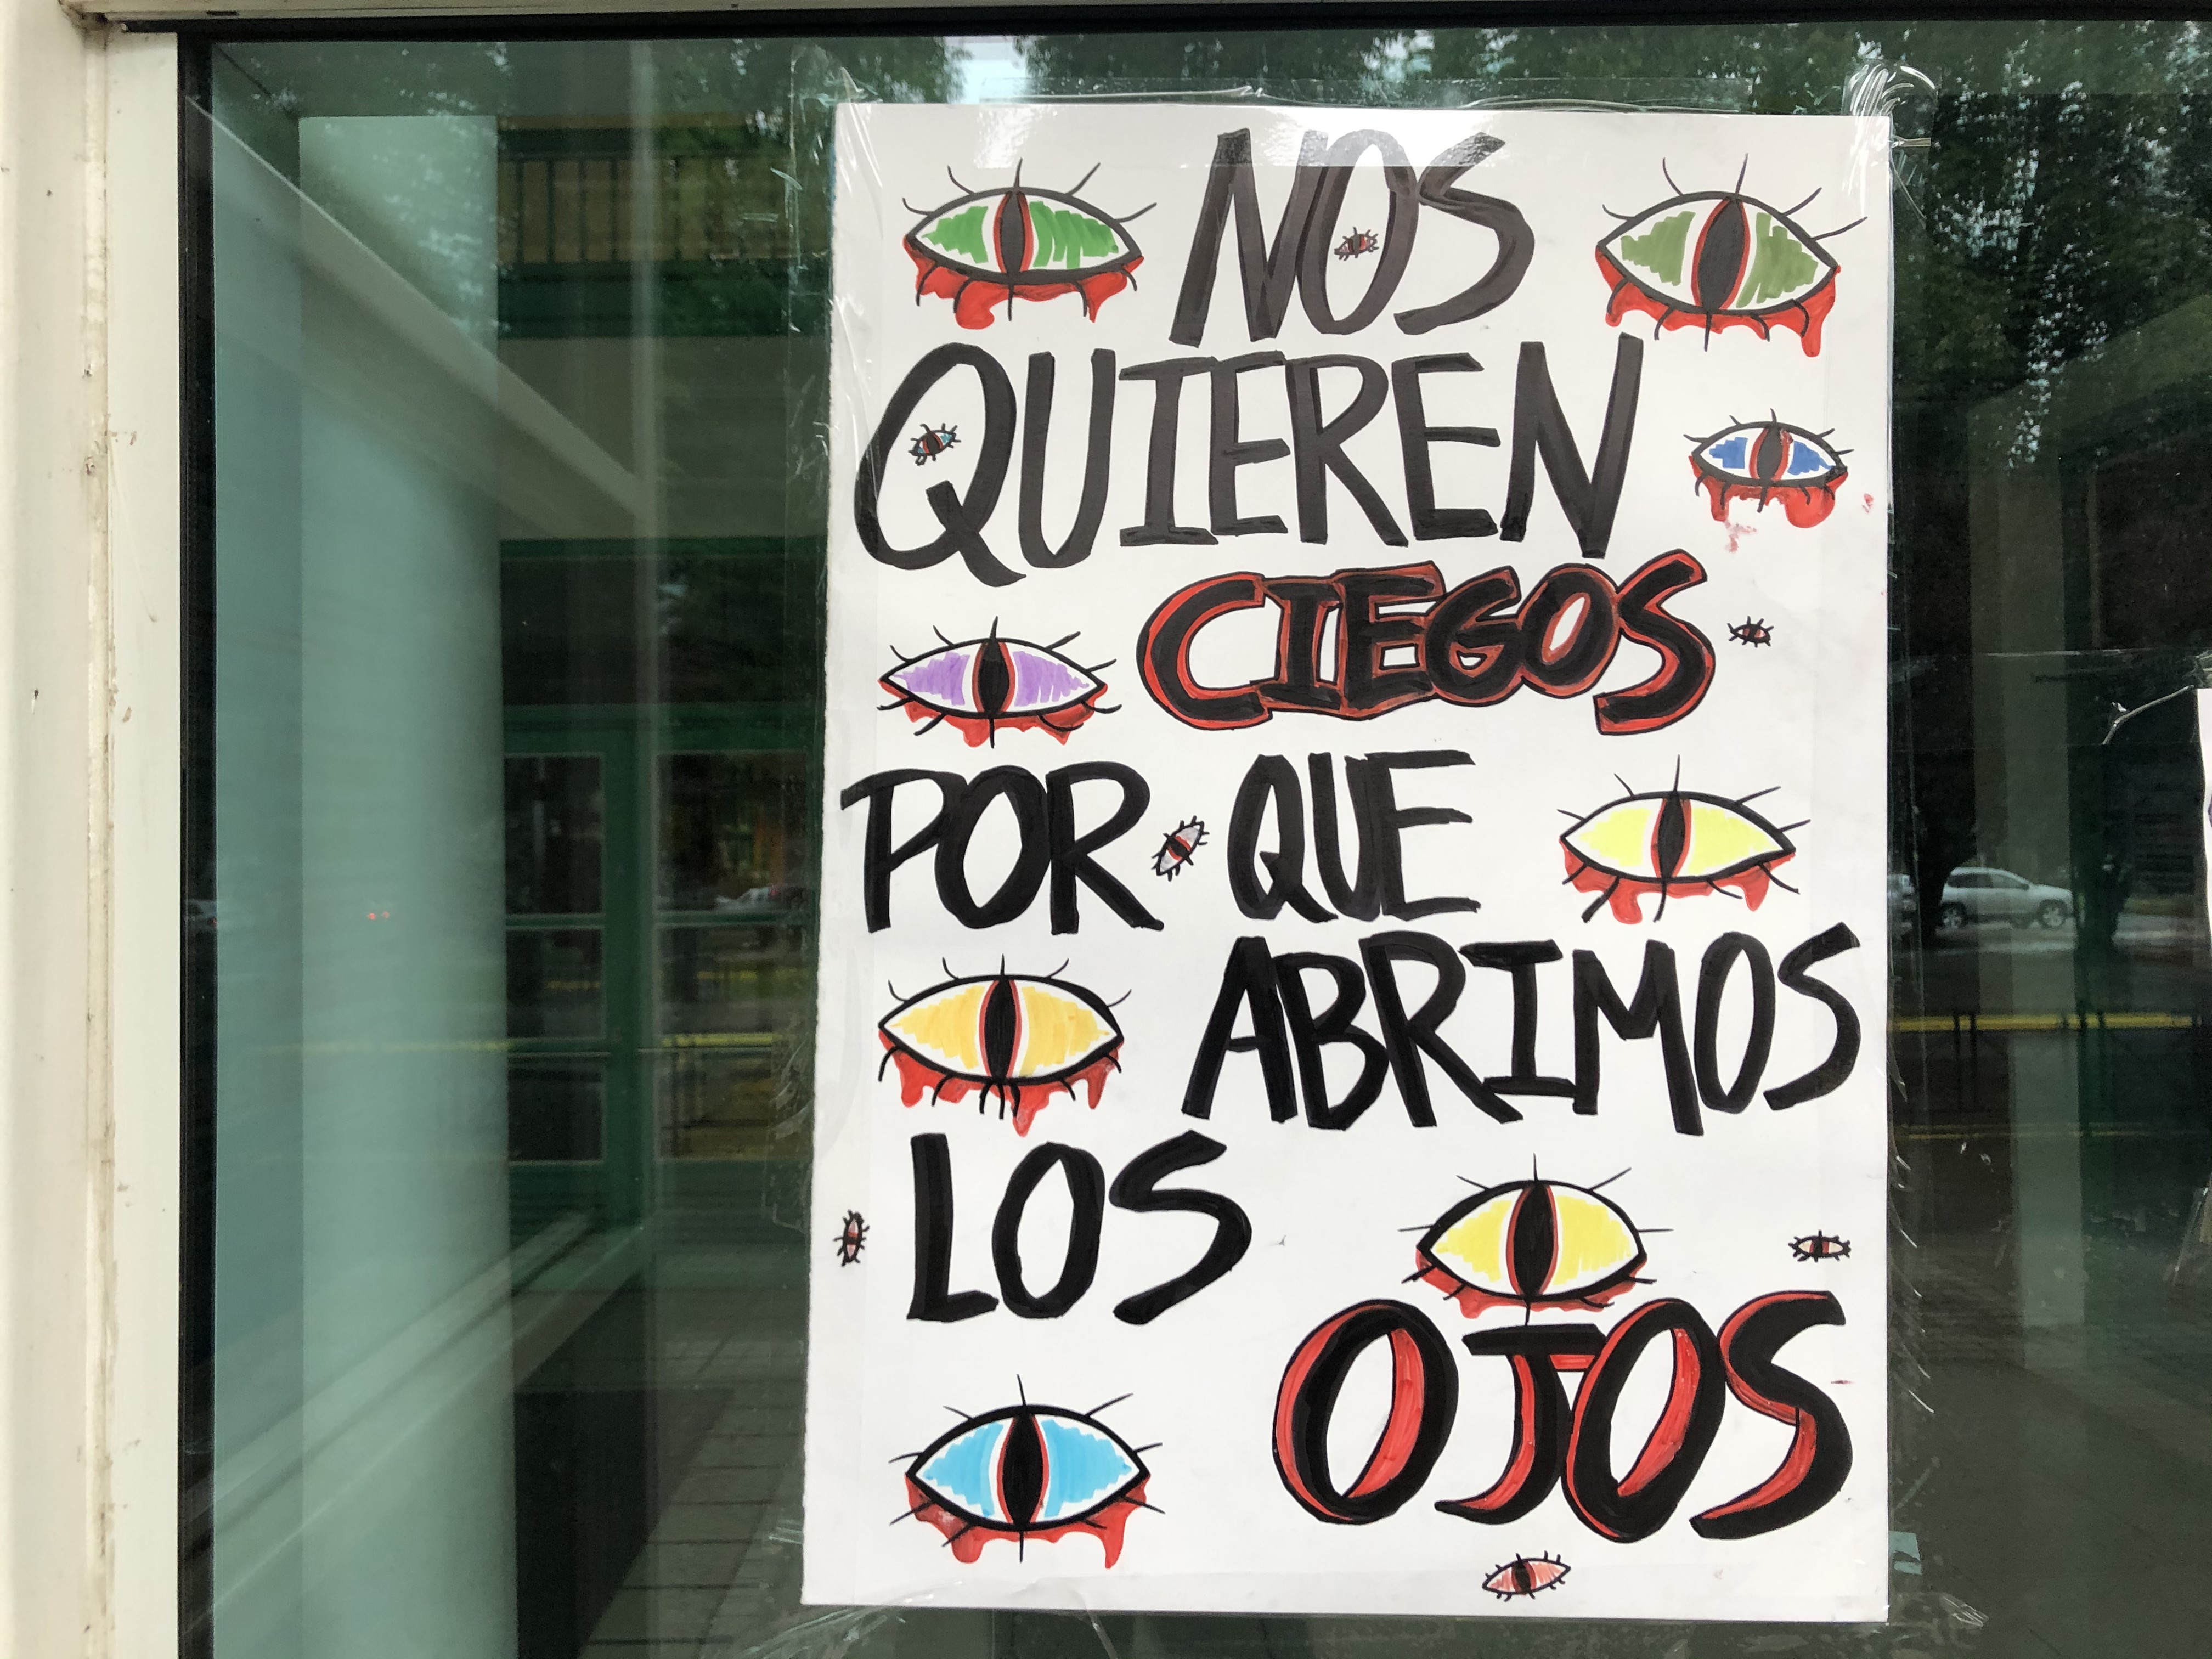 NOS
QUIEREN
CIEGOS
POR QUE
ABRIMOS
LOS
OJOS